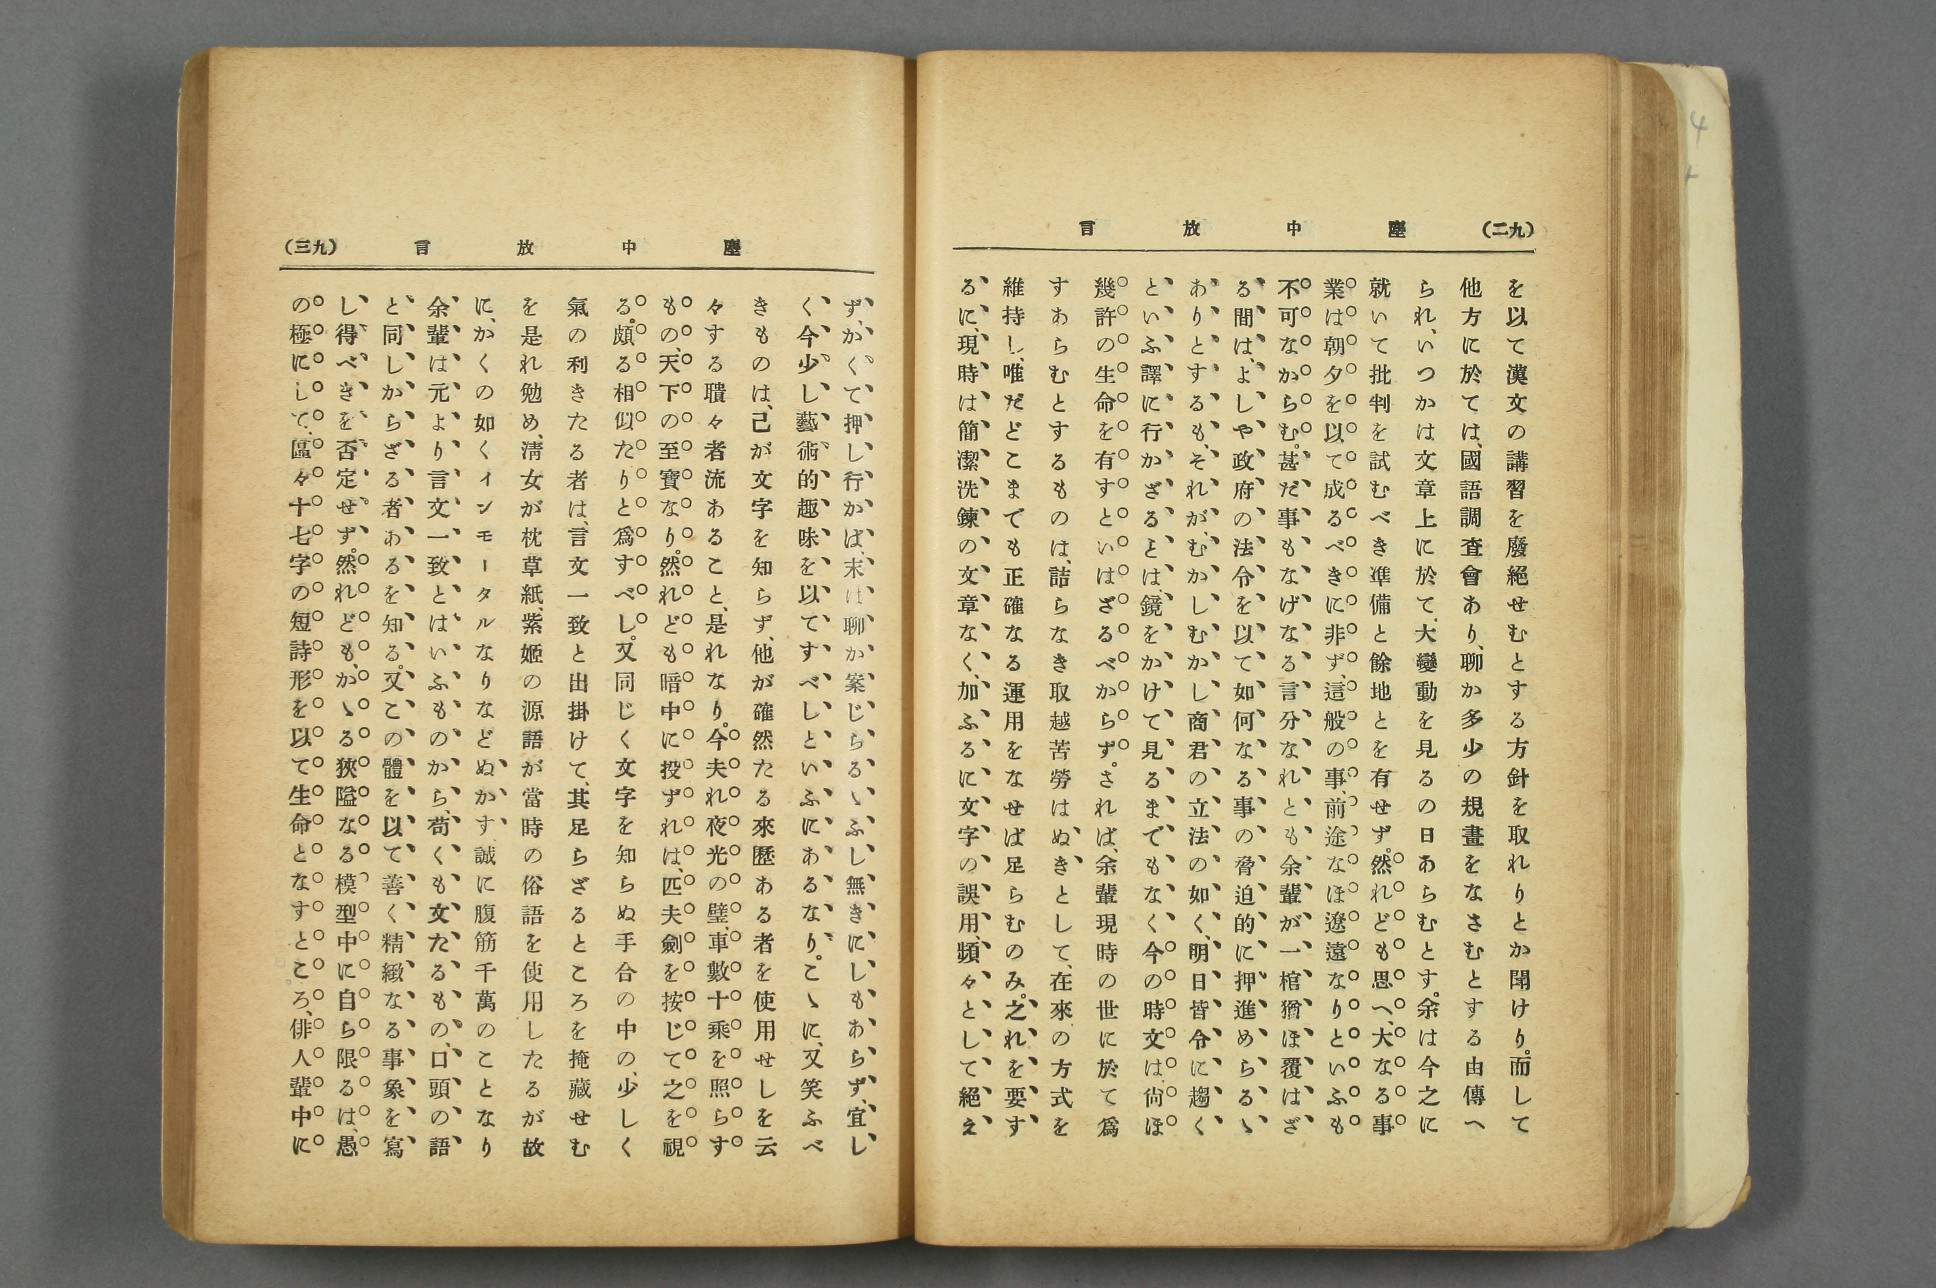 (九二)
塵中放言
を以て漢文の講習を廢絶せむとする方針を取れりとか聞けり。而して
他方に於ては、國語調査會あり、聊か多少の規畫をなさむとする由傳へ
られ、いつかは文章上に於て、大變動を見るの日あらむとす。余は今之に
就いて批判を試むべき準備と餘地とを有せず。然れども思へ、大なる事
業は朝夕を以て成るべきに非ず、這般の事、前途なほ遼遠なりといふも
不可なからむ。甚だ事もなげなる言分なれとも余輩が一棺猶ほ覆はざ
る間は、よしや政府の法令を以て如何なる事の脅迫的に押進めらるゝ
ありとするも、それが、むかしむかし商君の立法の如く、明日皆令に趨く
といふ譯に行かざるとは、鏡をかけて見るまでもなく今の時文は、尙ほ
幾許の生命を有すといはざるべからず。されば、余輩現時の世に於て爲
すあらむとするものは、詰らなき取越苦勞はぬきとして、在來の方式を
維持し、唯だどこまでも正確なる運用をなせば足らむのみ。之れを要す
るに、現時は簡潔洗鍊の文章なく、加ふるに文字の誤用、頻々として絕え
(九三)
塵中放言
ず、かくて押し行かば、末は聊か案じらるゝふし無きにしもあらず、宜し
く今少し藝術的趣味を以てすべしといふにあるなり。こゝに、又笑ふべ
きものは、己が文字を知らず、他が確然たる來歷ある者を使用せしを云
々する聵々者流あること、是れなり。今夫れ夜光の璧、車數十乘を照らす
もの、天下の至寶なり。然れども暗中に投ずれは、匹夫劍を按じて之を視
る。頗る相似たりと爲すべし。又同じく文字を知らぬ手合の中の、少しく
氣の利きたる者は、言文一致と出掛けて、其足らざるところを掩藏せむ
を是れ勉め、淸女が枕草紙、紫姬の源語が當時の俗語を使用したるが故
に、かくの如くインモータルなりなどぬかす、誠に腹筋千萬のことなり
余輩は元より言文一致とはいふものから、苟くも文たるもの、口頭の語
と同しからざる者あるを知る。又この體を以て善く精緻なる事象を寫
し得べきを否定せず。然れども、かゝる狹隘なる模型中に自ら限るは、愚
の極にして、區々十七字の短詩形を以て生命となすところ、俳人輩中に